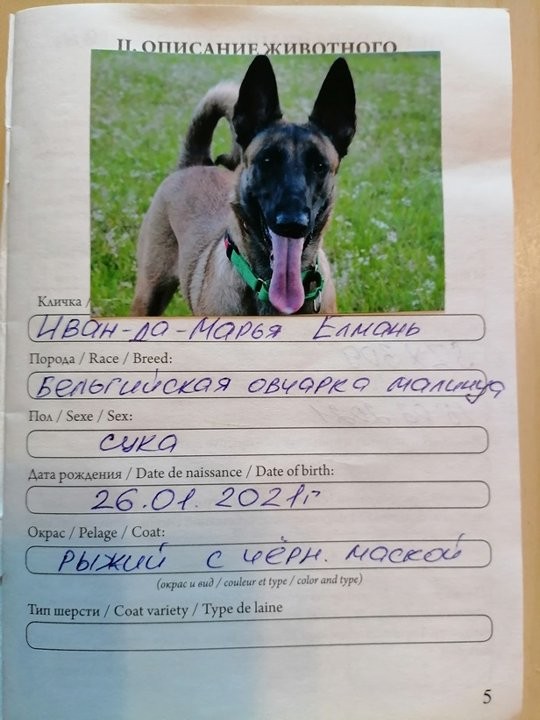 II. ОПИСАНИЕ ЖИВОТНОГО
Кличка /
Иван-да-Марья Елмань
Порода / Race / Breed:
Бельгийская овчарка малинуа
Пол / Sexe / Sex:
сука
Дата рождения / Date de naissance / Date of birth:
26.01.2021г
Окрас / Pelage / Coat:
рыжий с чёрн. маской
(окрас и вид / couleur et type / color and type)
Тип шерсти / Coat variety / Type de laine
5